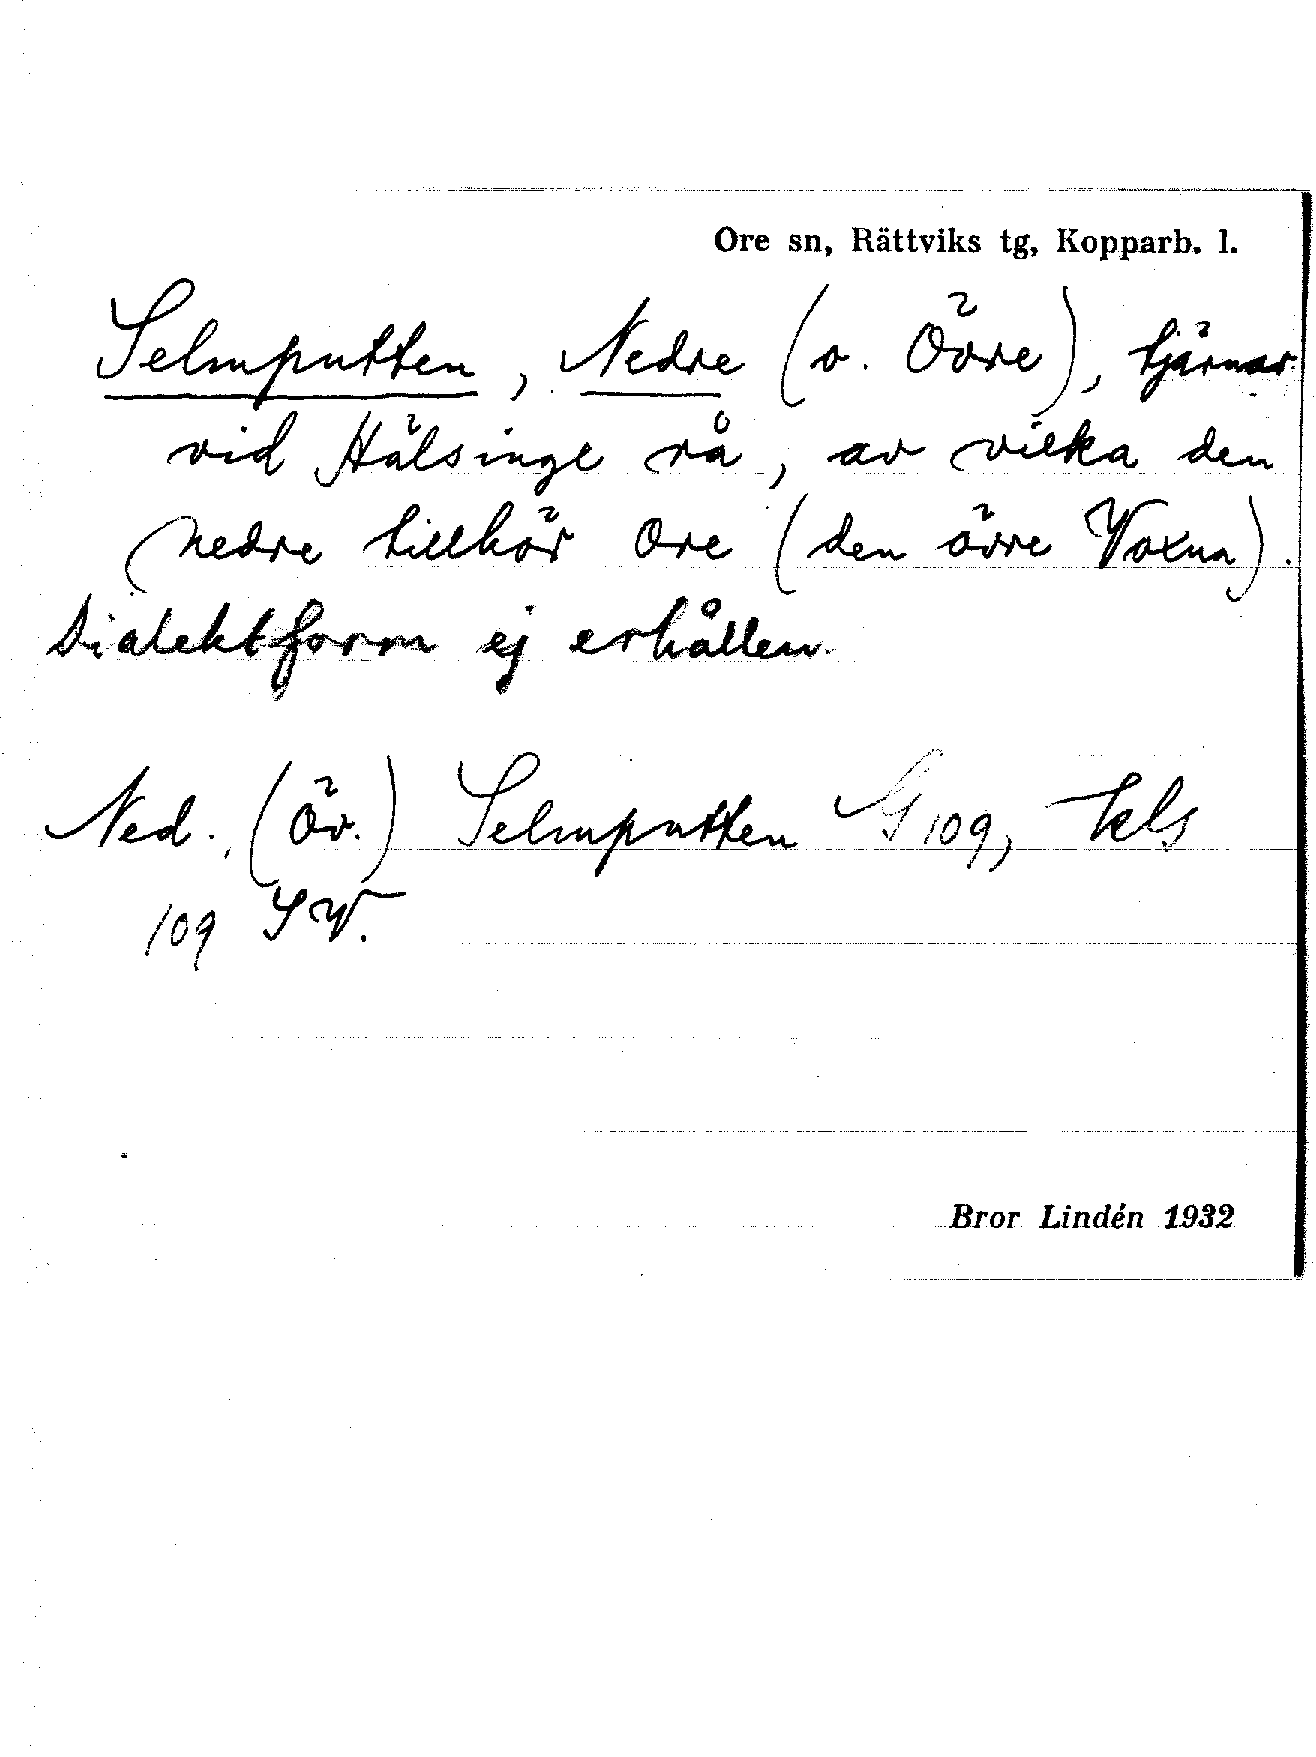 Ore sn, Rättviks tg, Kopparb. l.
Selmputten, Nedre (o. Övre), tjärnar
vid Hälsinge rå, av vilka den
nedre tillhör Ore (den övre Voxna).
Dialektform ej erhållen.
Ned. (Öv.) Selmputten G 109, Kls
109 SV.
Bror Lindén 1932